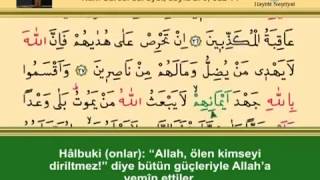 Hayrât Neşriyat
عَاقِبَةُ الْمُكَذِّبِينَ ﴿٣٦﴾ اِنْ تَحْرِصْ عَلٰى هُدٰيهُمْ فَاِنَّ اللّٰهَ
لَا يَهْدِى مَنْ يُضِلُّ وَمَا لَهُمْ مِنْ نَاصِرِينَ ﴿٣٧﴾ وَاَقْسَمُوا
بِاللّٰهِ جَهْدَ اَيْمَانِهِمْ لَا يَبْعَثُ اللّٰهُ مَنْ يَمُوتُ بَلٰى وَعْدًا
Hâlbuki (onlar): “Allah, ölen kimseyi
diriltmez!” diye bütün güçleriyle Allah’a
yemîn ettiler.